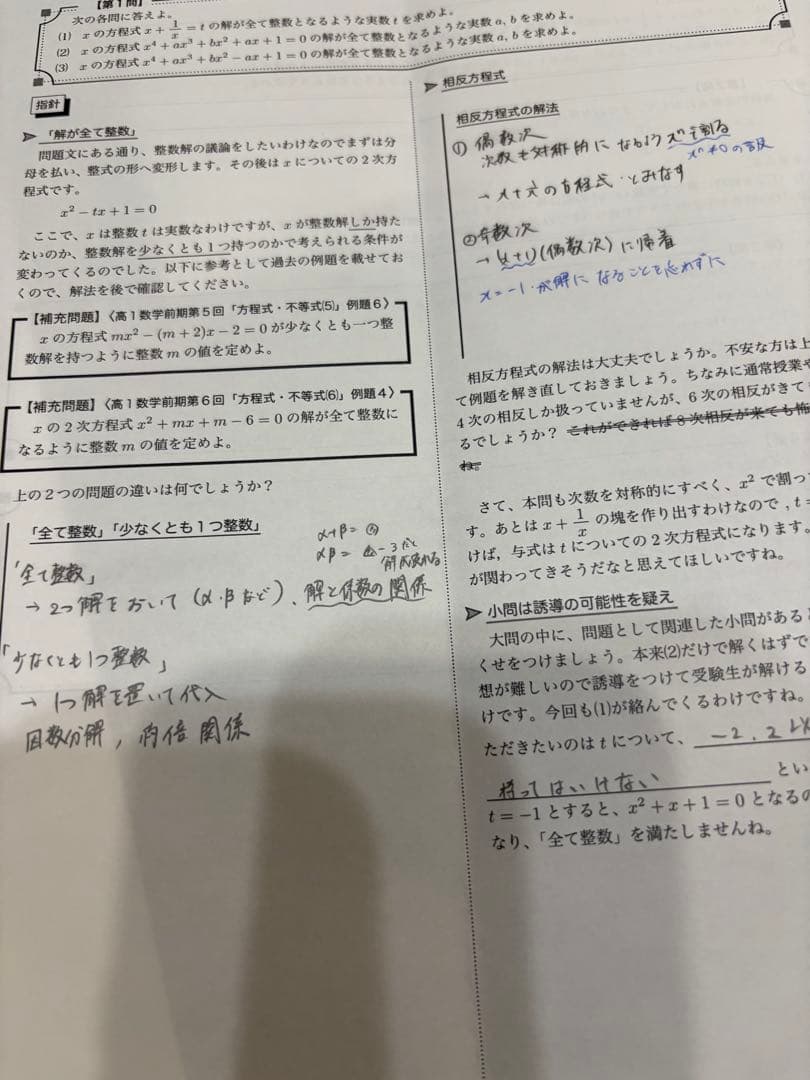 【第1問】
次の各問に答えよ。
(1) x の方程式 x + 1/x = t の解が全て整数となるような実数 t を求めよ。
(2) x の方程式 x⁴ + ax³ + bx² + ax + 1 = 0 の解が全て整数となるような実数 a, b を求めよ。
(3) x の方程式 x⁴ + ax³ + bx² − ax + 1 = 0 の解が全て整数となるような実数 a, b を求めよ。
指針
「解が全て整数」
問題文にある通り、整数解の議論をしたいわけなのでまずは分
母を払い、整式の形へ変形します。その後は x についての 2 次方
程式です。
x² − tx + 1 = 0
ここで、x は整数 t は実数なわけですが、x が整数解しか持た
ないのか、整数解を少なくとも 1 つ持つのかで考えられる条件が
変わってくるのでした。以下に参考として過去の例題を載せてお
くので、解法を後で確認してください。
【補充問題】〈高1数学前期第5回「方程式・不等式(5)」例題6〉
x の方程式 mx² − (m + 2)x − 2 = 0 が少なくとも一つ整
数解を持つように整数 m の値を定めよ。
【補充問題】〈高1数学前期第6回「方程式・不等式(6)」例題4〉
x の 2 次方程式 x² + mx + m − 6 = 0 の解が全て整数に
なるように整数 m の値を定めよ。
上の 2 つの問題の違いは何でしょうか?
「全て整数」「少なくとも1つ整数」
α+β=
αβ=
「全て整数」
→ 2つ解をおいて (α・βなど)、解と係数の関係
「少なくとも1つ整数」
→ 1つ解を置いて代入
因数分解, 約倍関係
相反方程式
相反方程式の解法
① 偶数次
次数も対称的になるようxⁿで割る
xⁿ≠0の言及
→ x+1/xの方程式とみなす
②奇数次
→ (x+1)(偶数次)に帰着
x=-1が解になることを忘れずに
相反方程式の解法は大丈夫でしょうか。不安な方は上
て例題を解き直しておきましょう。ちなみに通常授業や
4 次の相反しか扱っていませんが、6 次の相反がきて
るでしょうか? これができれば 8 次相反が来ても怖
ね。
さて、本問も次数を対称的にすべく、x² で割っ
す。あとは x + 1/x の塊を作り出すわけなので, t =
けば、与式は t についての 2 次方程式になります。
が関わってきそうだなと思えてほしいですね。
小問は誘導の可能性を疑え
大問の中に、問題として関連した小問があると
くせをつけましょう。本来(2)だけで解くはずで
想が難しいので誘導をつけて受験生が解ける
けです。今回も(1)が絡んでくるわけですね。
ただきたいのは t について、 −2, 2 以
持ってはいけない とい
t = −1 とすると、x² + x + 1 = 0 となるの
なり、「全て整数」を満たしませんね。